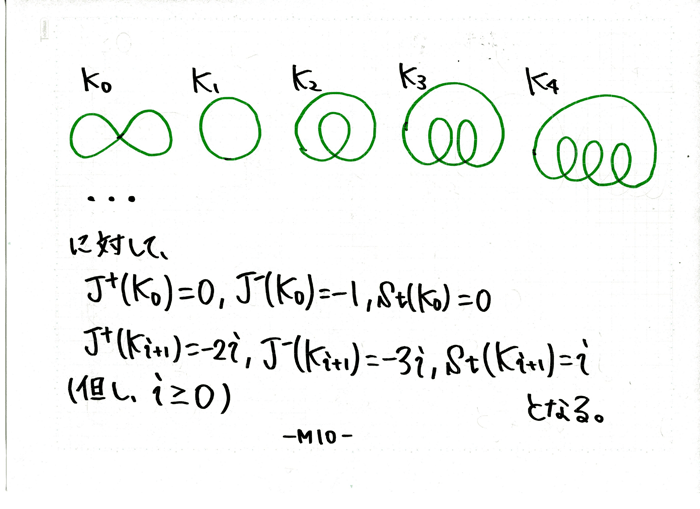 K₀ K₁ K₂ K₃ K₄
...
に対して、
J⁺(K₀)=0, J⁻(K₀)=-1, St(K₀)=0
J⁺(Kᵢ₊₁)=-2i, J⁻(Kᵢ₊₁)=-3i, St(Kᵢ₊₁)=i
(但し、i≥0) となる。
-M10-